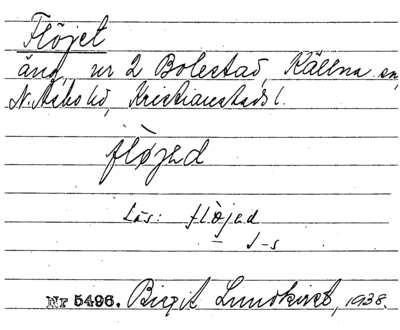 Flöjet
äng, nr 2 Bolestad, Källna sn,
N. Åsbo hd, Kristianstads l.
flöjed
Läs: flöjed
J-s
Nr 5496. Birgit Lundkvist, 1938.